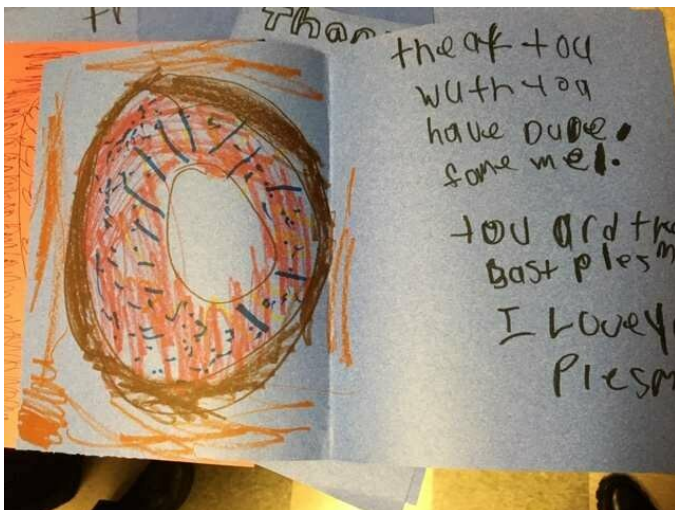 Than
theak you
wuth you
have Dube.
fome me1.
you ard the
Bast plesm
I Lovey
Plesm